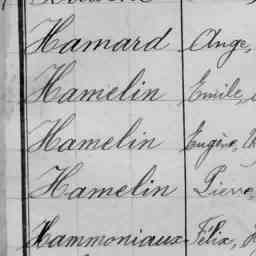 Hamard Ange,
Hamelin Emile,
Hamelin Eugène,
Hamelin Pierre
Hammoniaux Félix,